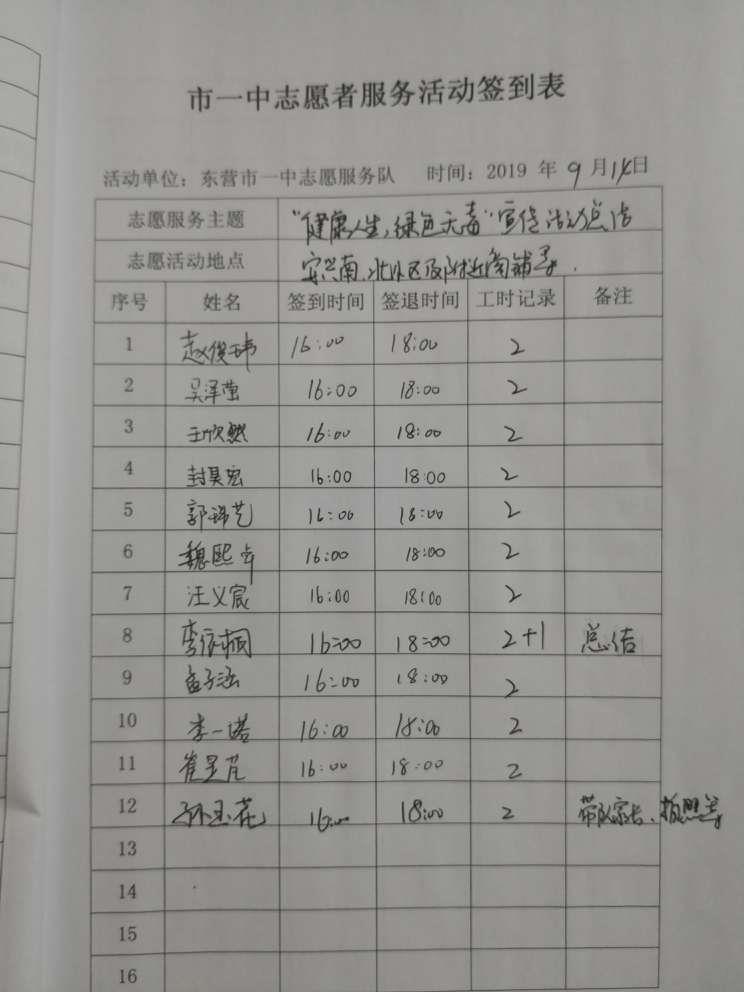 市一中志愿者服务活动签到表
活动单位：东营市一中志愿服务队 时间：2019 年 9 月 14日
志愿服务主题 “健康人生，绿色无毒”宣传活动总结
志愿活动地点 安兴南、北小区及附近商铺等.
序号 姓名 签到时间 签退时间 工时记录 备注
1 赵俊玮 16:00 18:00 2
2 吴泽莹 16:00 18:00 2
3 王欣然 16:00 18:00 2
4 封昊宏 16:00 18:00 2
5 郭艺 16:00 18:00 2
6 魏熙卓 16:00 18:00 2
7 汪义宸 16:00 18:00 2
8 李依桐 16:00 18:00 2+1 总结
9 孟子涵 16:00 18:00 2
10 李一诺 16:00 18:00 2
11 崔 16:00 18:00 2
12 孙玉花 16:00 18:00 2 带队家长、拍照等
13
14
15
16